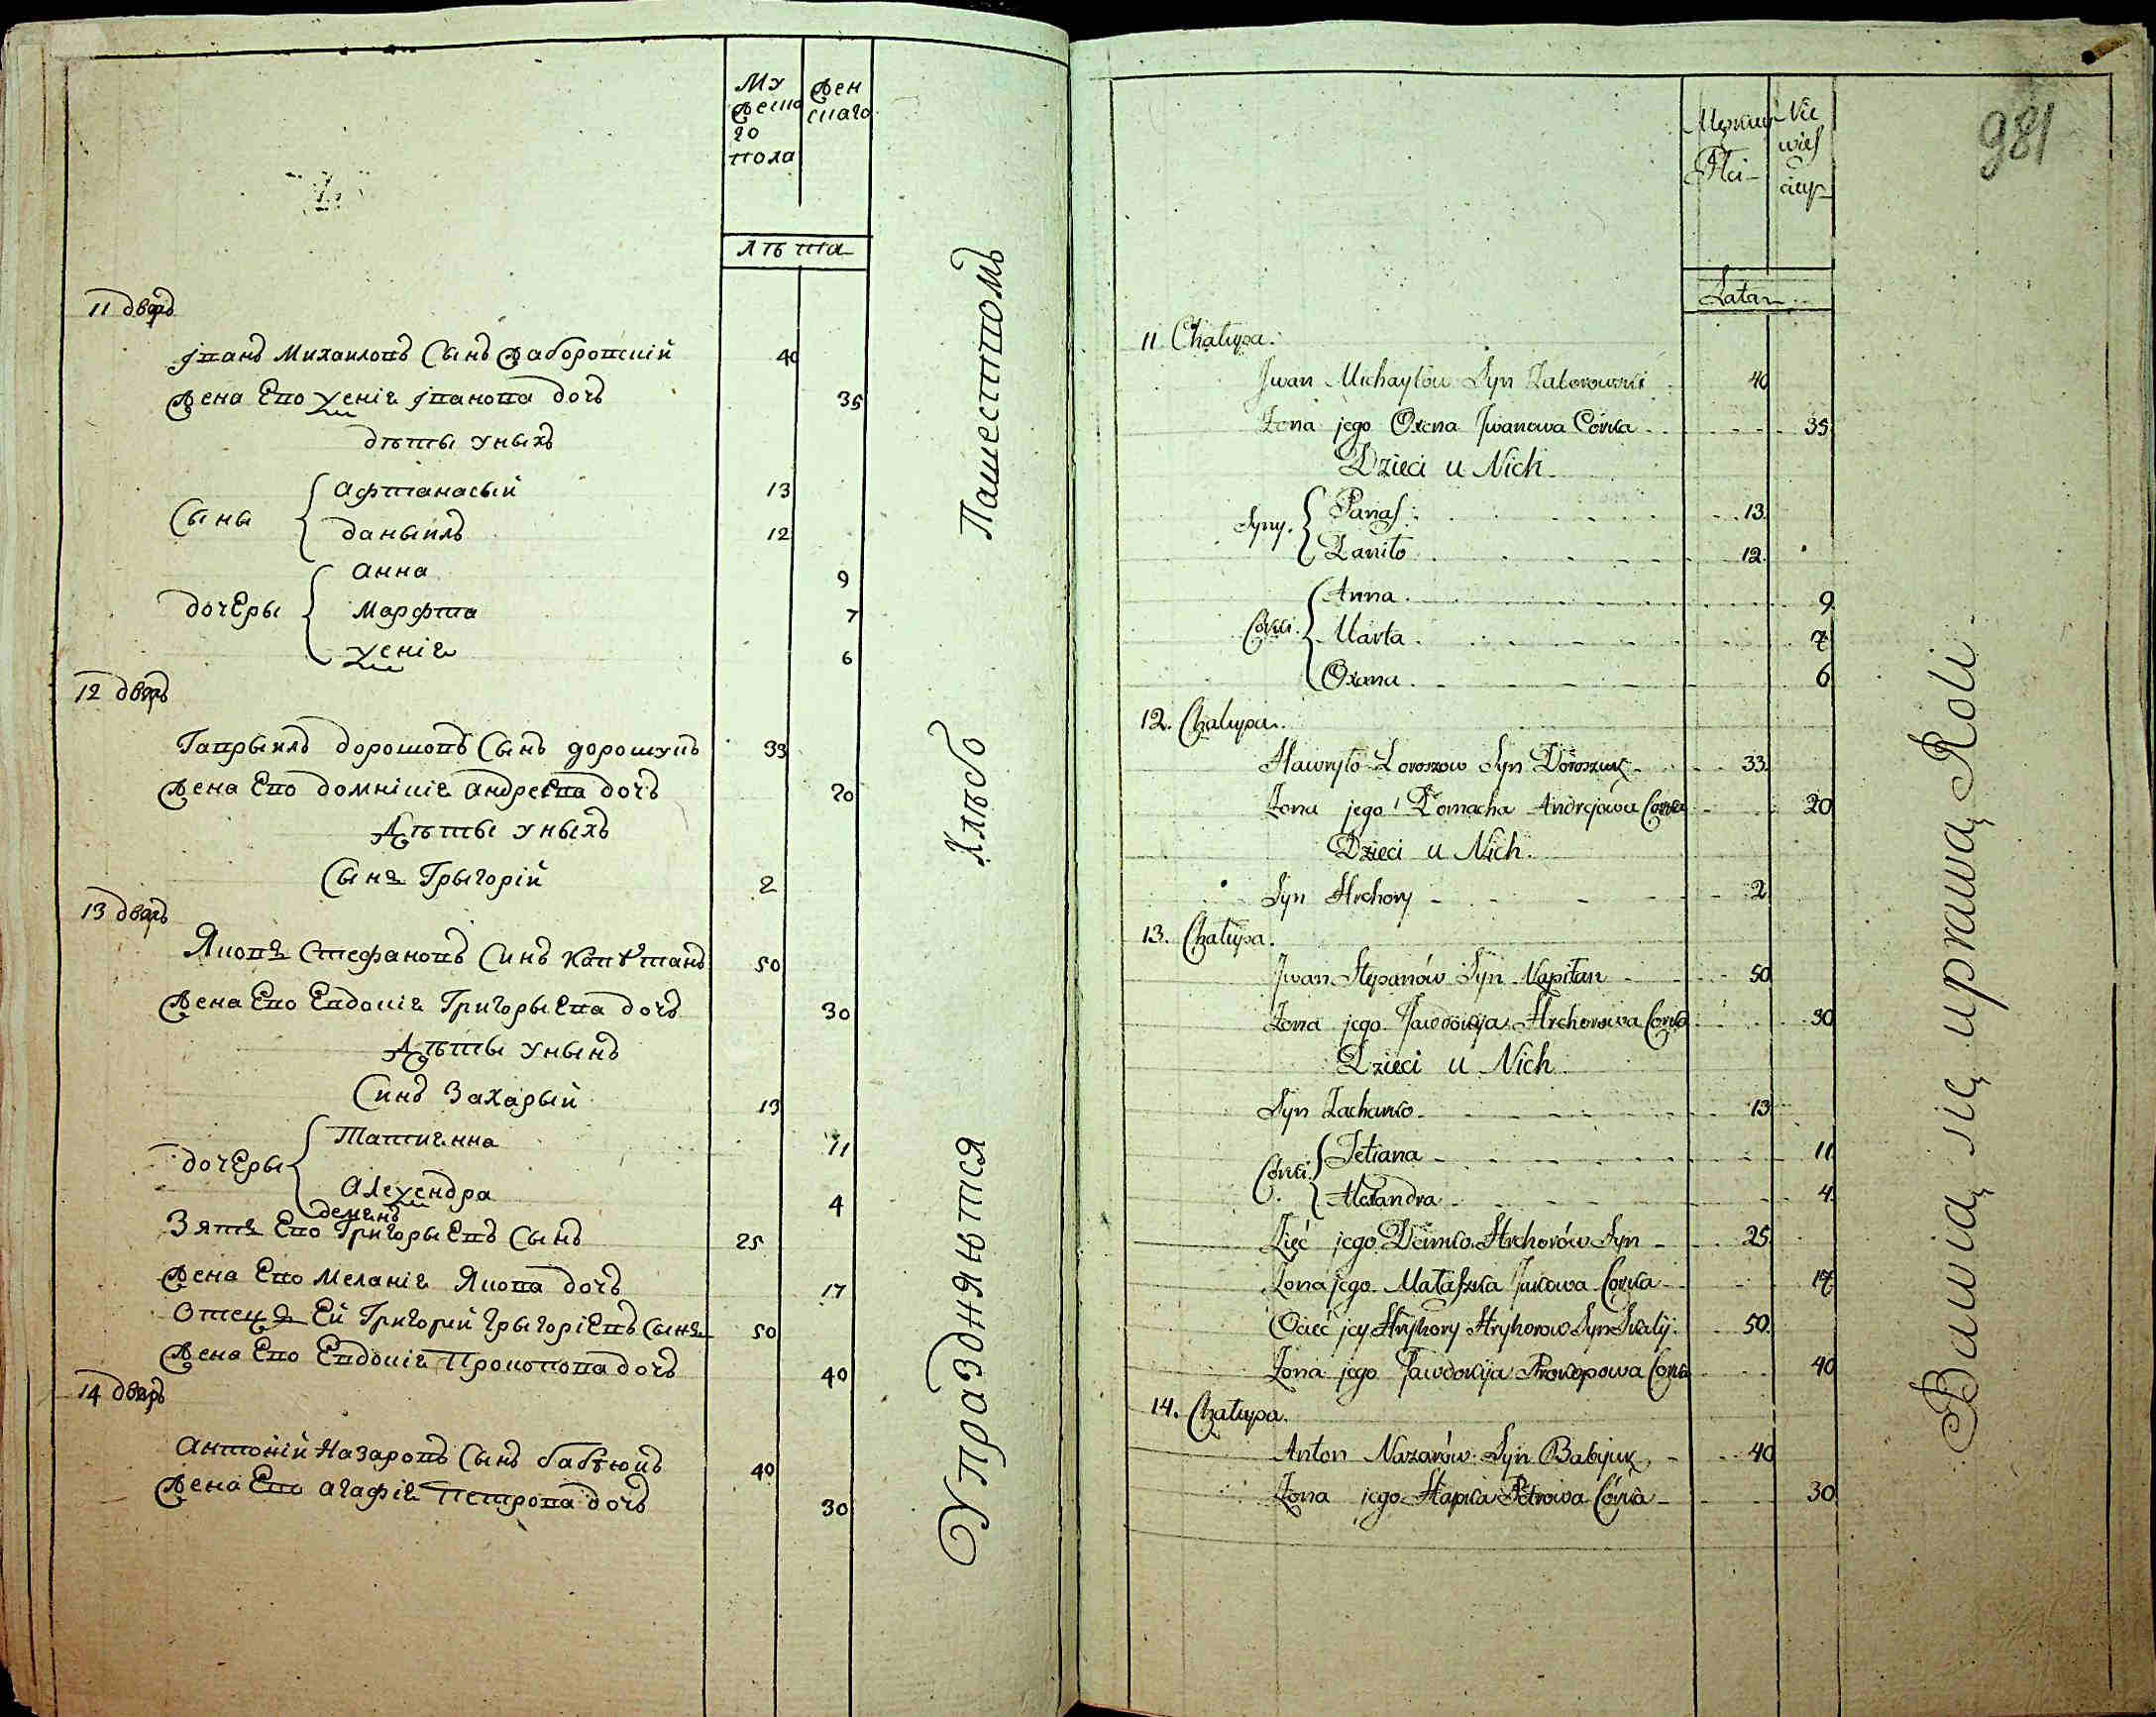 Му
жеска
го
пола
жен
скаго
лѣта
11 дворъ
Іванъ Михаиловъ Сынъ Заборовскій 40
жена Его Ѯенія Іванова дочь 35
дѣты уныхъ
Сыны
Афтанасый 13
Даныилъ 12
дочеры
Анна 9
Марфта 7
Ѯенія 6
12 дворъ
Гаврыилъ дорошовъ Сынъ дорошукъ 33
жена Его домнікія андреева дочь 20
Дѣты уныхъ
Сынъ Грыгорій 2
13 дворъ
Яковъ Стефановъ Синъ Капѣтанъ 50
жена Его Евдокія Григорыева дочь 30
Дѣты уныхъ
Синъ Захарый 13
дочеры
Татиянна 11
Алеѯендра 4
демянъ
Зять Его Григорыевъ Сынъ 25
жена Его Меланія Якова дочь 17
Отець Ей Григорий Грыгоріевъ Сынъ 50
жена Его Евдокія Прокопова дочь 40
14 дворъ
Антоній Назаровъ Сынъ бабѣюкъ 40
жена Его агафія Петрова дочь 30
Упражняются Хлѣбо Пашеством
981
Męskiej
Płci
Nie
wieś
ciey
Lata
11 Chałupa.
Jwan Michayłow Syn Zaborowski 40
Żona jego Oxena Jwanowa Córka 35
Dzieci u Nich
Syny.
Panas 13.
Daniło 12.
Córki.
Anna 9
Marta 7
Oxana 6
12. Chałupa.
Hawryło Doroszow Syn Doroszuk 33.
Żona jego Domacha Andrejowa Corka 20
Dzieci u Nich.
Syn Hrehory 2
13. Chałupa.
Jwan Stepanów Syn Kapitan 50
Żona jego Jawdokija Hrehorowa Corka 30
Dzieci u Nich
Syn Zacharko 13
Córki.
Tetiana 11
Alexandra 4.
Zięć jego Demko Hrehorów Syn 25
Żona jego Małaszka Jakowa Corka 17
Ociec jey Hryhory Hryhorow Syn Skalij. 50.
Żona jego Jawdokija Prokopowa Corka 40
14. Chałupa.
Anton Nazarów Syn Babijuk 40
Żona jego Hapka Petrowa Córka 30
Bawią się uprawą Roli.